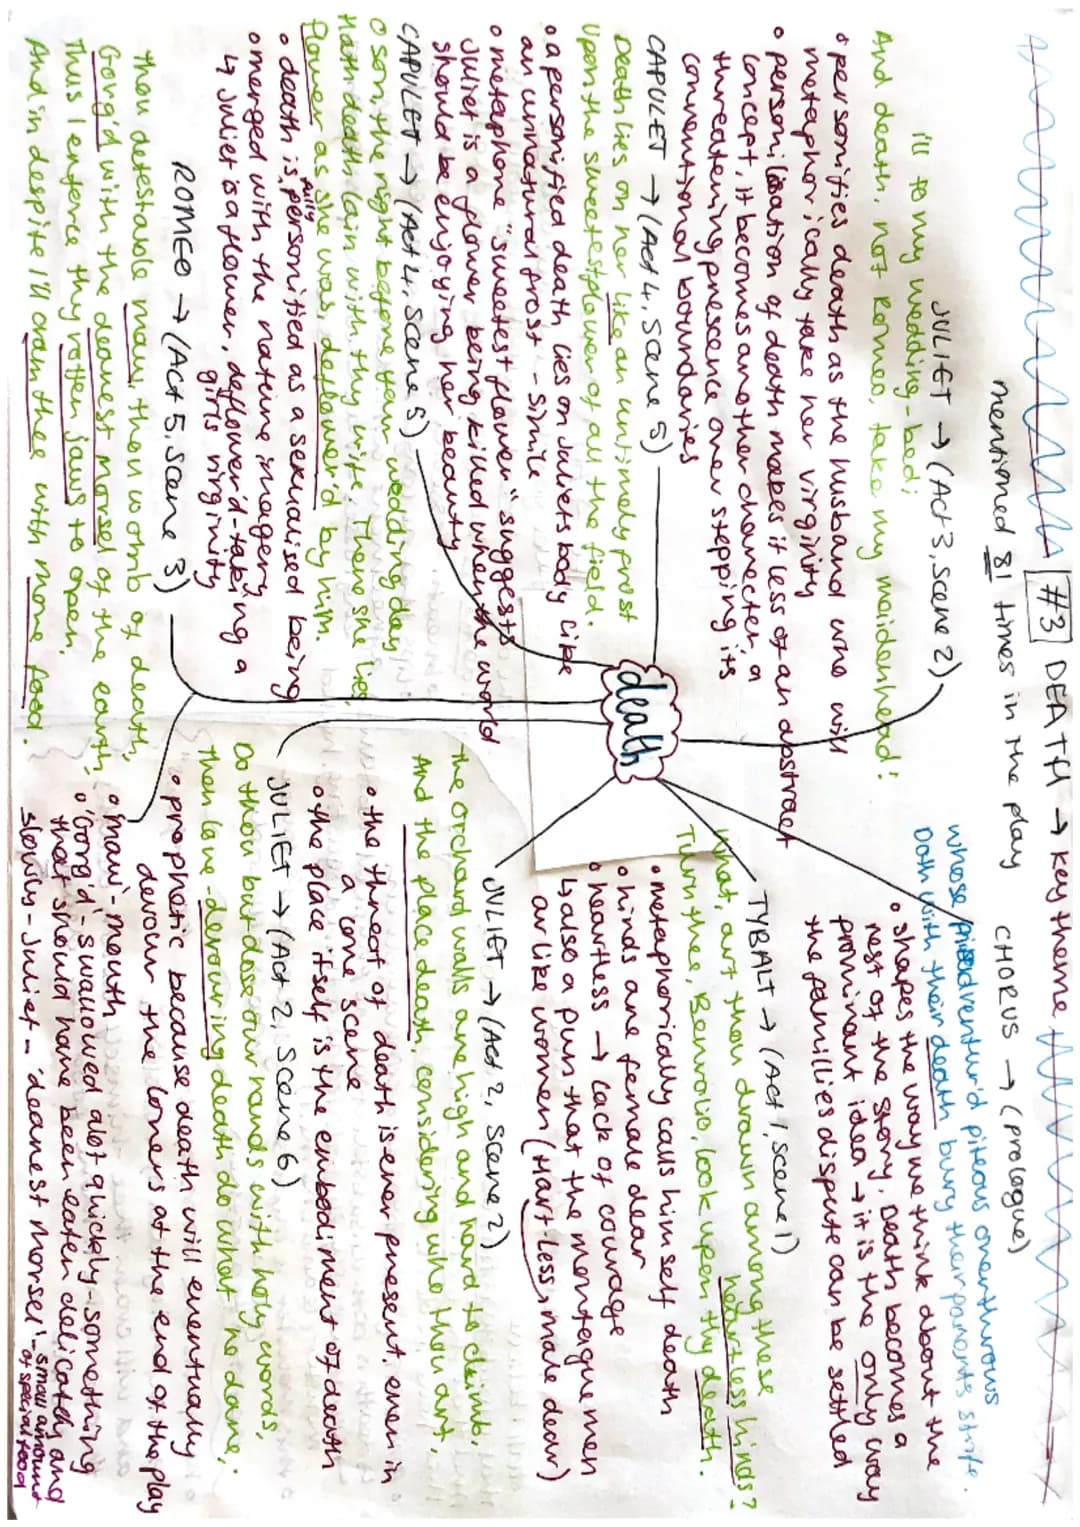 #3 DEATH → key theme
mentioned 81 times in the play
CHORUS → (prologue)
whose misadventur'd piteous overthrows
Doth with their death bury their parents strife.
• shapes the way we think about the
rest of the story. Death becomes a
prominent idea → it is the only way
the famillies dispute can be settled
JULIET → (Act 3, scene 2)
i'll to my wedding-bed;
And death, not Romeo, take my maidenhead!
• personifies death as the husband who will
metaphorically take her virginity
• personification of death makes it less of an abstract
concept, it becomes another character, a
threatening prescence over stepping its
conventional boundaries
TYBALT → (Act 1, scene 1)
What, art thou drawn among these
heartless hinds?
Turn thee, Benvolio, look upon thy death.
• metaphorically calls himself death
• hinds are female dear
• heartless → lack of courage
↳ also a pun that the montague men
are like women (Hart-less, male dear)
CAPULET → (Act 4, scene 5)
Death lies on her like an untimely frost
Upon the sweetest flower of all the field.
• a personified death lies on Juliets body like
an unnatural frost - simile
• metaphore "sweetest flower" suggests
Juliet is a flower being killed when the world
should be enjoying her beauty
JULIET → (Act 2, scene 2)
the orchard walls are high and hard to climb,
And the place death, considering who thou art,
• the threat of death is ever present, even in
a love scene
• the place itself is the embodiment of death
CAPULET → (Act 4, scene 5)
O son, the night before thy wedding day
Hath death lain with thy wife. There she lies,
flower as she was, deflowered by him.
• death is fully personified as a sexualised being
• merged with the nature imagery
↳ Juliet is a flower, deflower'd - taking a
girls virginity
JULIET → (Act 2, scene 6)
Do thou but close our hands with holy words,
Then love-devouring death do what he dare,
• prophetic because death will eventually
devour the lovers at the end of the play
ROMEO → (Act 5, scene 3)
thou detestable maw, thou womb of death,
Gorg'd with the dearest morsel of the earth,
Thus I enforce thy rotten jaws to open,
And in despite I'll cram thee with more food.
• 'maw' - mouth
• 'Gorg'd' - swallowed alot quickly - something
that should have been eaten delicately and
slowly - Juliet - 'dearest morsel' - small amount
of special food
death